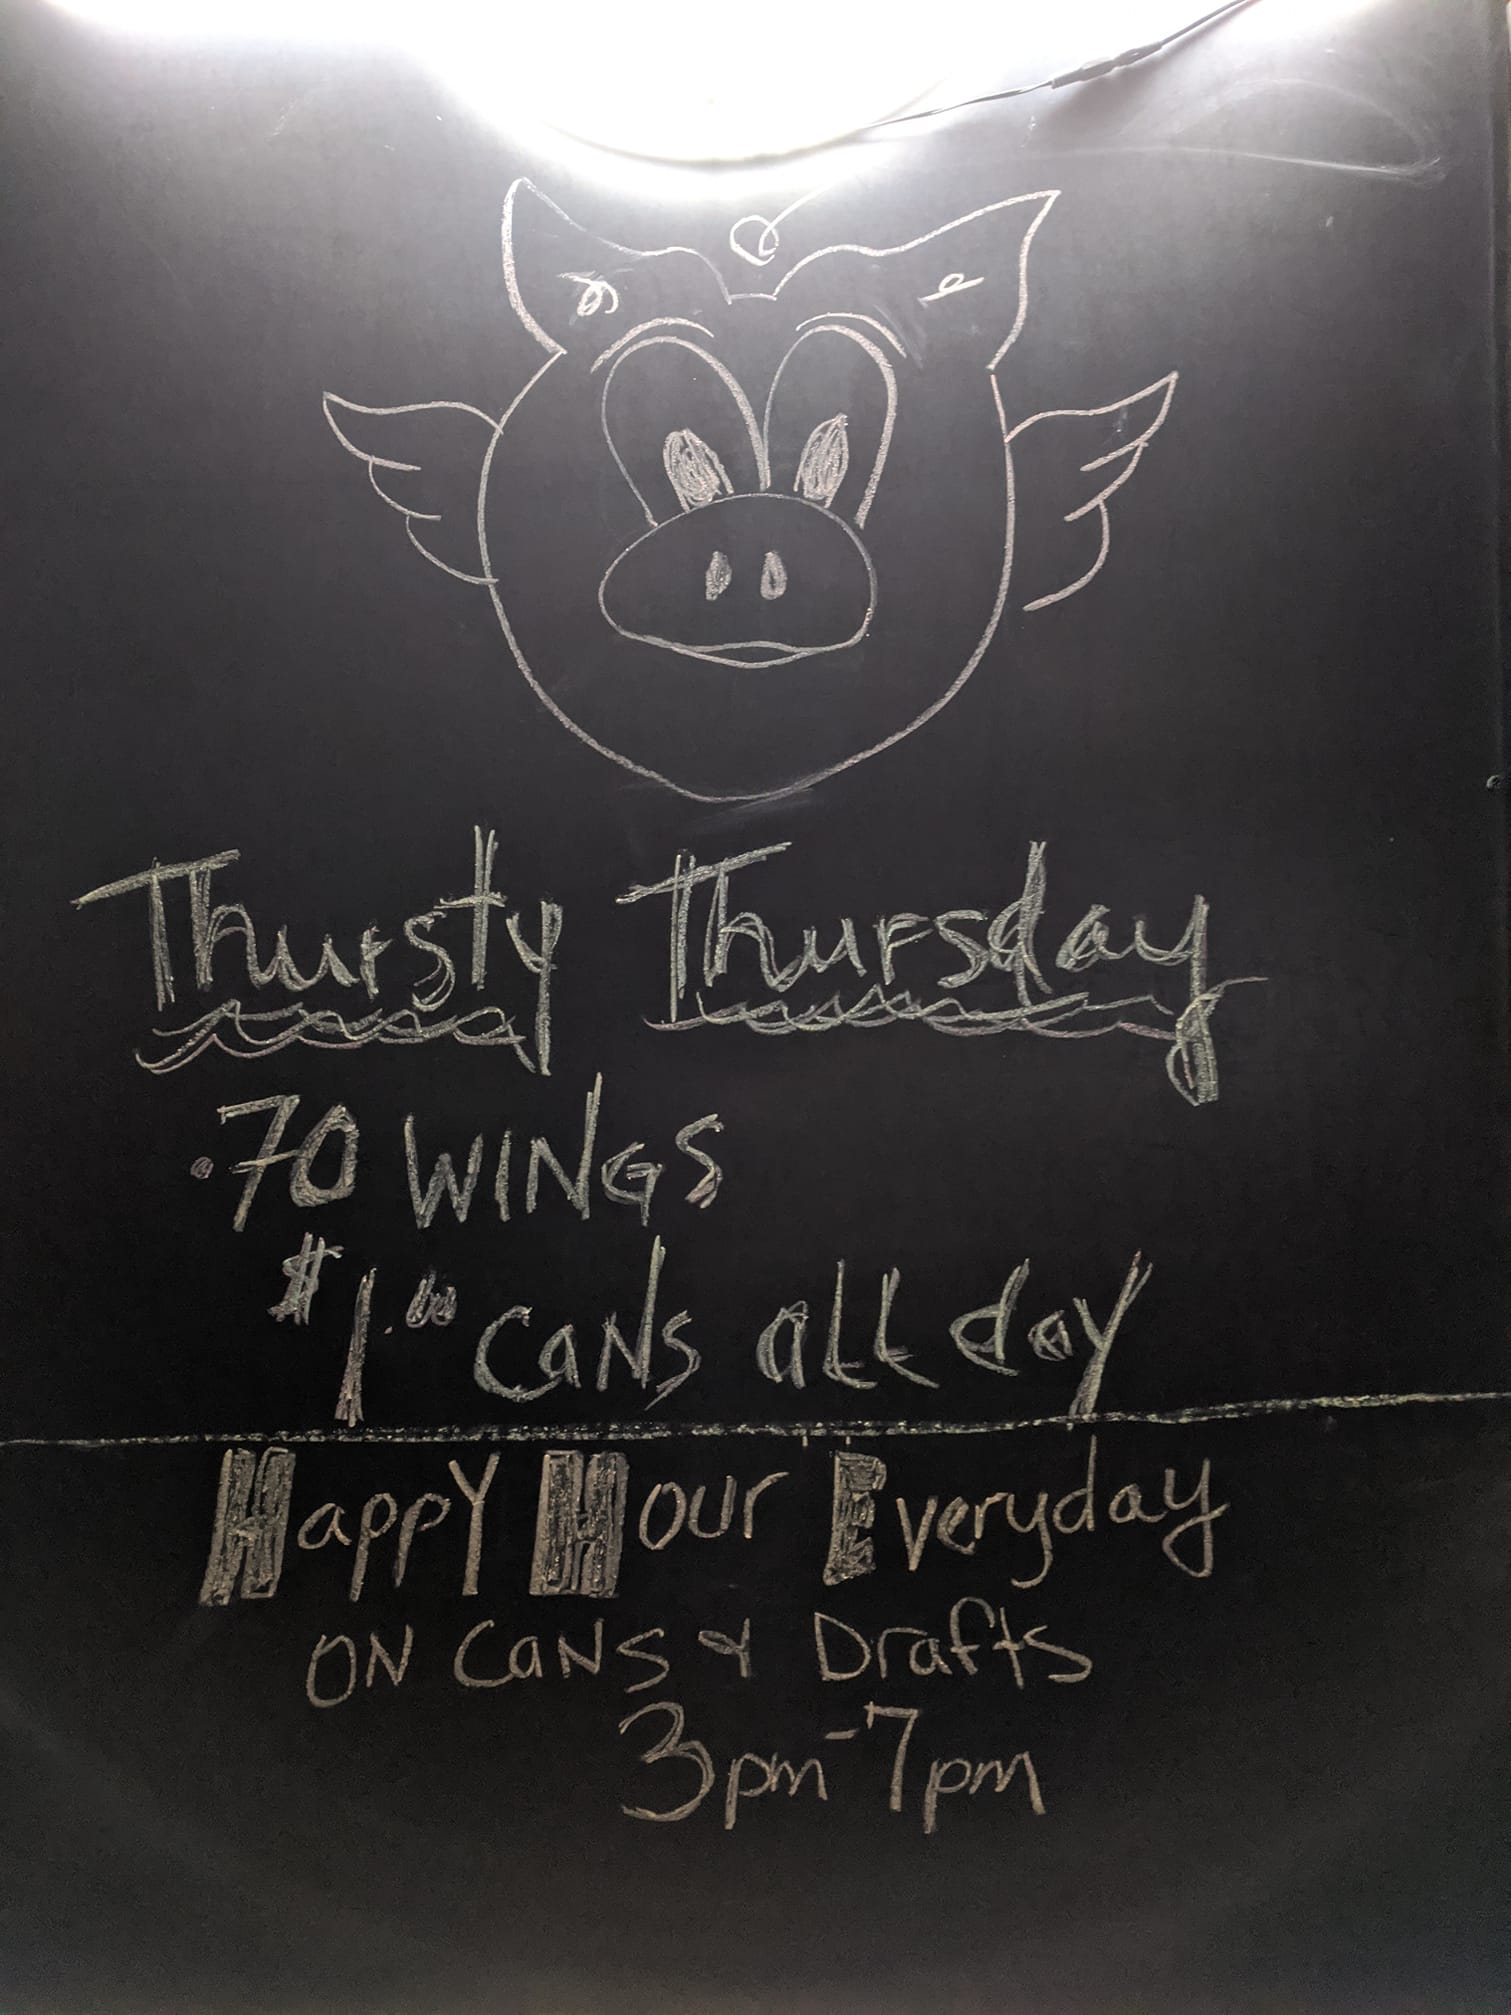 Thursty Thursday
.70 WINGS
$1.00 CaNs aLL day
Happy Hour Everyday
ON CaNS & Drafts
3pm-7pm